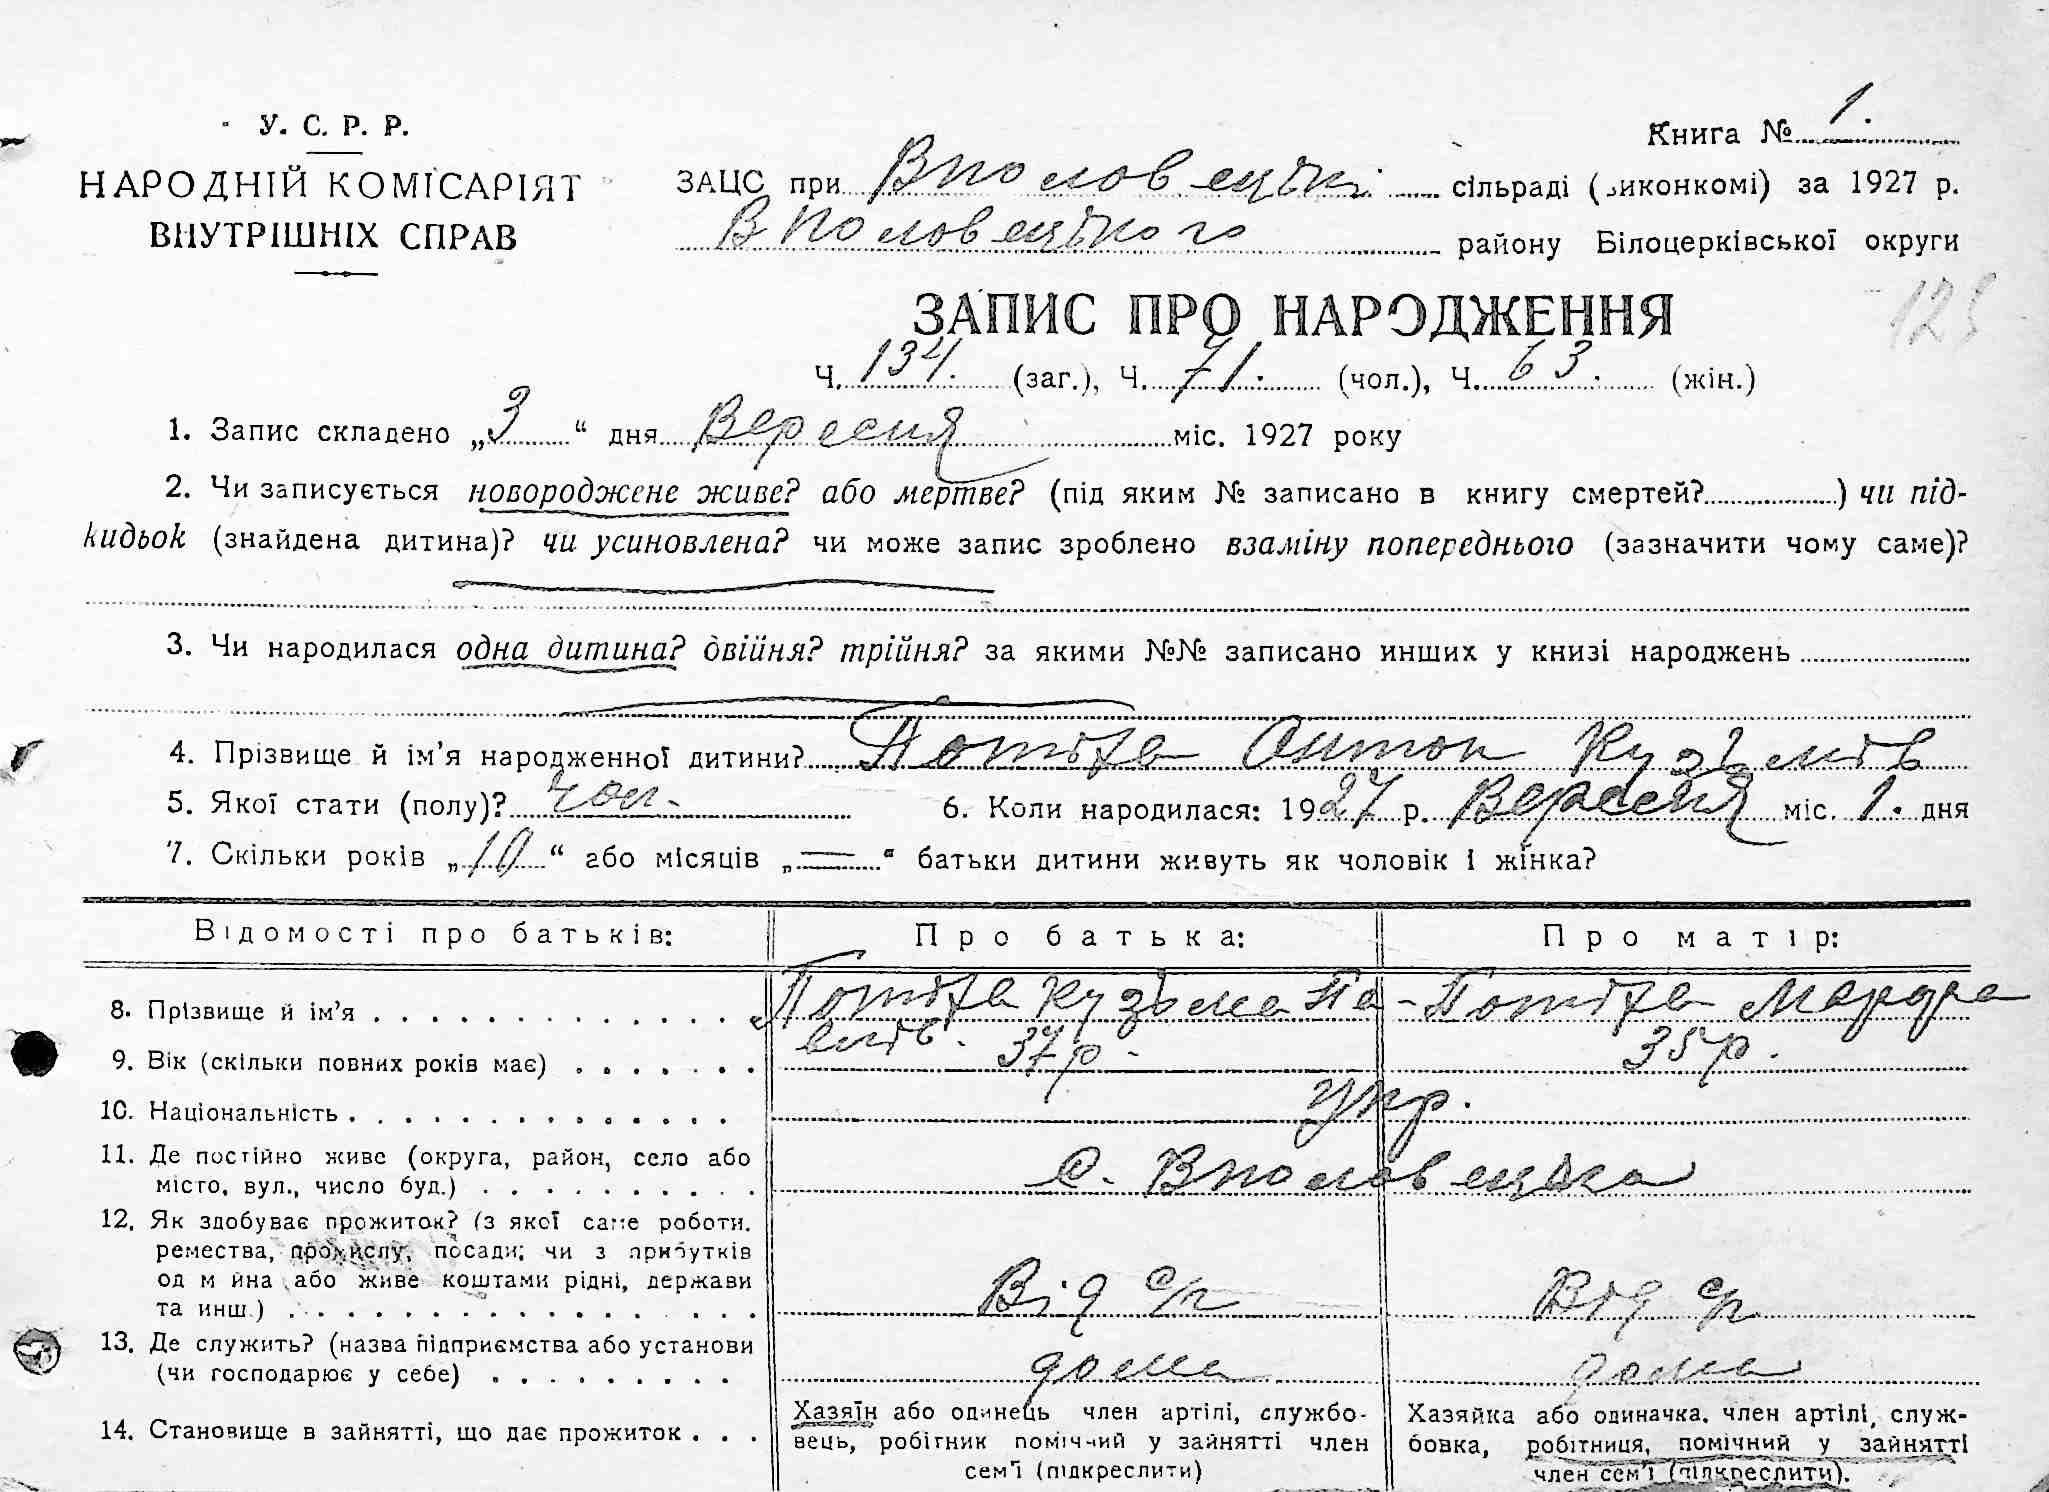 У. С. Р. Р.
НАРОДНІЙ КОМІСАРІЯТ
ВНУТРІШНІХ СПРАВ
Книга № 1.
ЗАЦС при Вполовецькі сільраді (виконкомі) за 1927 р.
Вполовецького району Білоцерківської округи
125
ЗАПИС ПРО НАРОДЖЕННЯ
Ч. 134. (заг.), Ч. 71. (чол.), Ч. 63. (жін.)
1. Запис складено „3“ дня Вересня міс. 1927 року
2. Чи записується новороджене живе? або мертве? (під яким № записано в книгу смертей?) чи під-
кидьок (знайдена дитина)? чи усиновлена? чи може запис зроблено взаміну попереднього (зазначити чому саме)?
3. Чи народилася одна дитина? двійня? трійня? за якими №№ записано инших у книзі народжень
4. Прізвище й ім’я народженної дитини? Потіха Антон Кузьмів
5. Якої стати (полу)? чол. 6. Коли народилася: 1927 р. Вересня міс. 1. дня
7. Скільки років „10“ або місяців „=“ батьки дитини живуть як чоловік і жінка?
Відомості про батьків: Про батька: Про матір:
8. Прізвище й ім’я Потіха Кузьма Па- Потіха Марфа
влів. 37 р. 35 р.
9. Вік (скільки повних років має)
10. Національність укр.
11. Де постійно живе (округа, район, село або
місто, вул., число буд.) с. Вполовецька
12. Як здобуває прожиток? (з якої саме роботи,
ремества, промислу, посади; чи з прибутків
од м йна або живе коштами рідні, держави
та инш.) Від с/г Від с/г
13. Де служить? (назва підприємства або установи
(чи господарює у себе) дома дома
14. Становище в зайнятті, що дає прожиток
Хазяїн або одинець член артілі, службо-
вець, робітник помічний у зайнятті член
сем’ї (підкреслити)
Хазяйка або одиначка, член артілі, служ-
бовка, робітниця, помічний у зайнятті
член сем’ї (підкреслити).